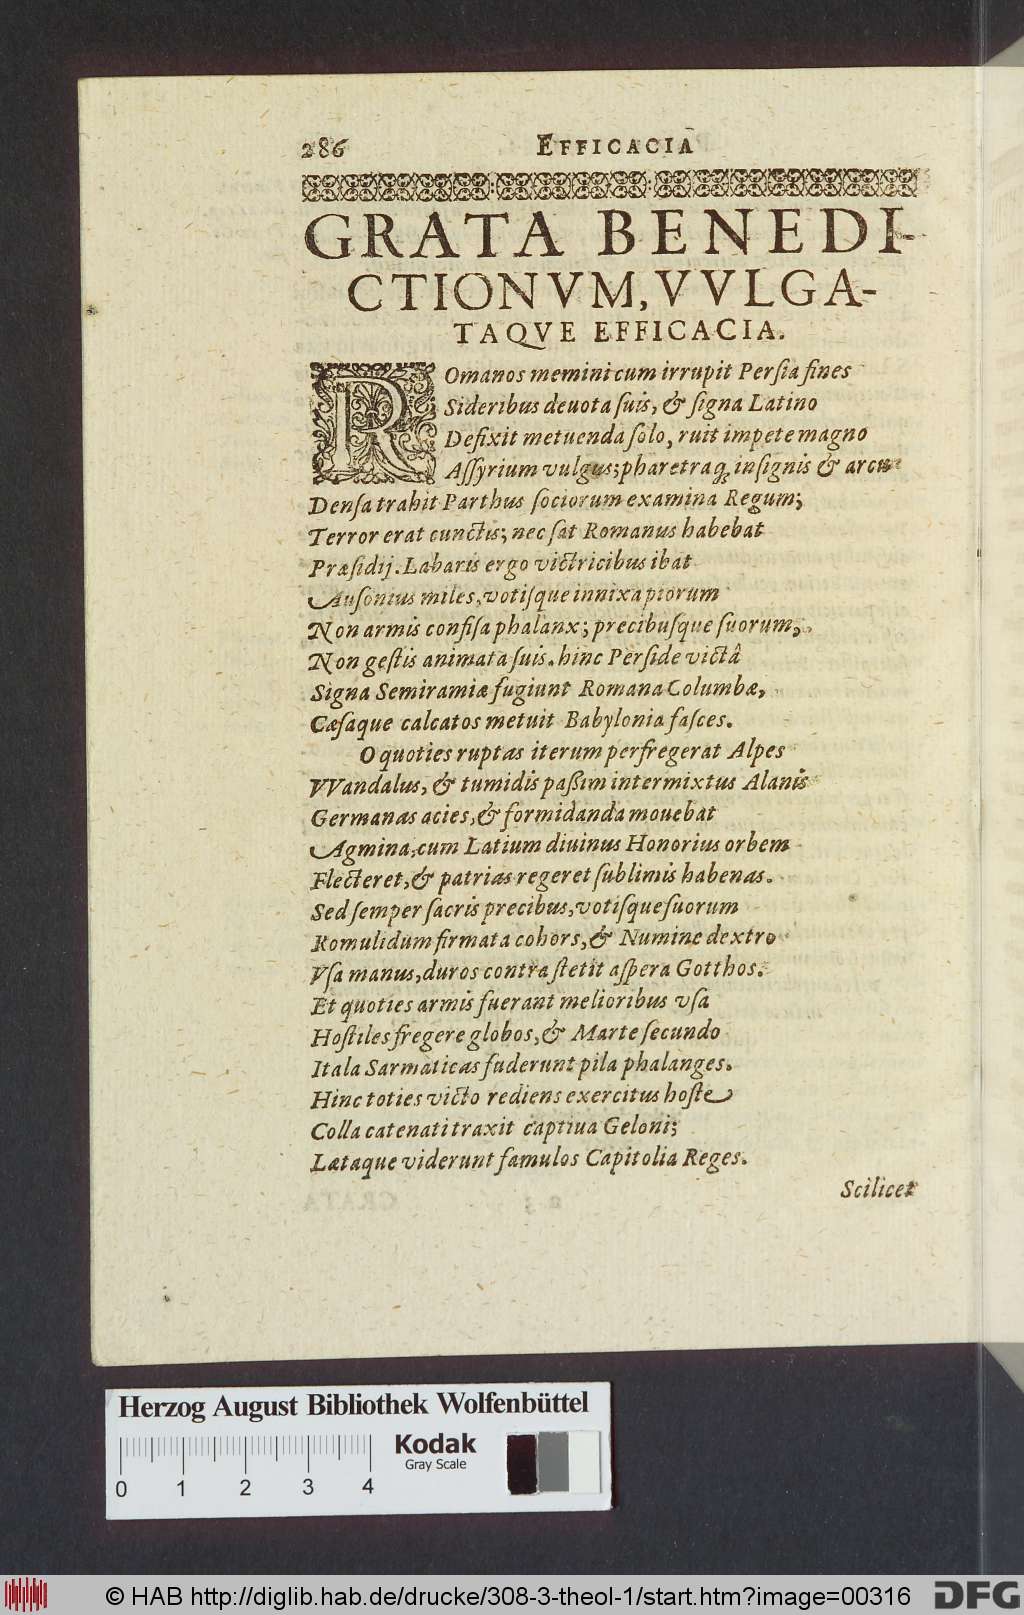 286 EFFICACIA
GRATA BENEDI-
CTIONVM, VVLGA-
TAQVE EFFICACIA.
ROmanos memini cum irrupit Persia fines
Sideribus deuota suis, & signa Latino
Defixit metuenda solo, ruit impete magno
Assyrium vulgus; pharetraq; insignis & arcu
Densa trahit Parthus sociorum examina Regum;
Terror erat cunctis; nec sat Romanus habebat
Præsidij. Labaris ergo victricibus ibat
Ausonius miles, votisque innixa piorum
Non armis confisa phalanx; precibusque suorum,
Non gestis animata suis. hinc Perside victâ
Signa Semiramiæ fugiunt Romana Columbæ,
Cæsaque calcatos metuit Babylonia fasces.
O quoties ruptas iterum perfregerat Alpes
VVandalus, & tumidis passim intermixtus Alanis
Germanas acies, & formidanda mouebat
Agmina, cum Latium diuinus Honorius orbem
Flecteret, & patrias regeret sublimis habenas.
Sed semper sacris precibus, votisque suorum
Romulidum firmata cohors, & Numine dextro
Vsa manus, duros contra stetit aspera Gotthos.
Et quoties armis fuerant melioribus vsa
Hostiles fregere globos, & Marte secundo
Itala Sarmaticas fuderunt pila phalanges.
Hinc toties victo rediens exercitus hoste
Colla catenati traxit captiua Geloni;
Lætaque viderunt famulos Capitolia Reges.
Scilicet
Herzog August Bibliothek Wolfenbüttel
Kodak
Gray Scale
0 1 2 3 4
© HAB http://diglib.hab.de/drucke/308-3-theol-1/start.htm?image=00316 DFG